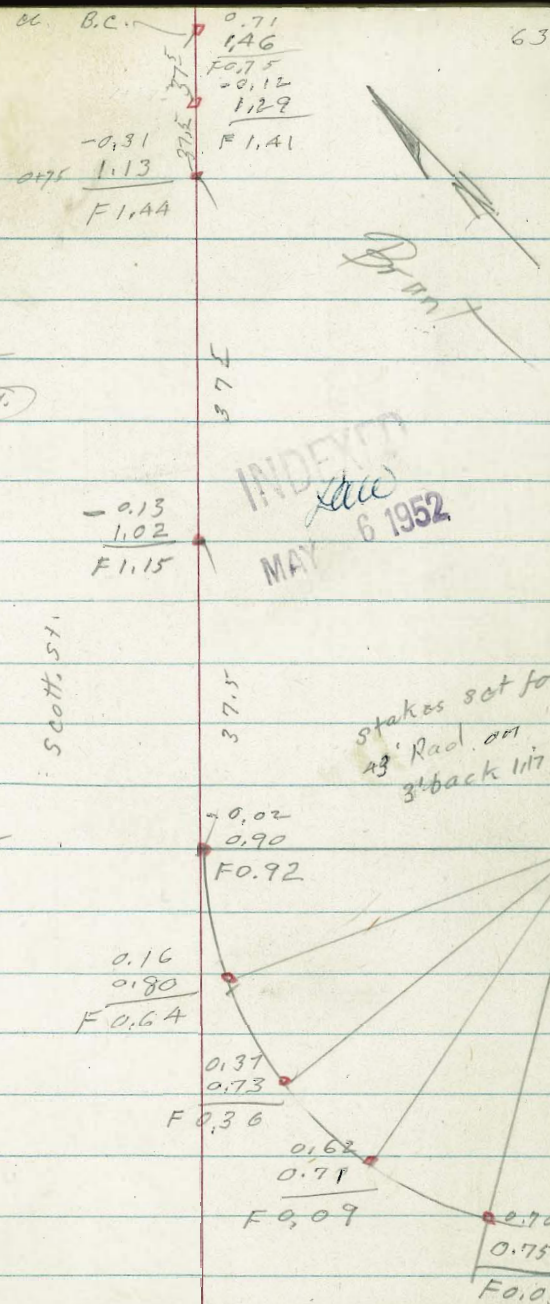 B.C.
63
0.71
1.46
F0.75
37.5
-0.12
1.29
F 1.41
37.5
-0.31
1.13
F 1.44
0+75
N
Brant
37.5
INDEXED
MAY 6 1952
- 0.13
1.02
F 1.15
Scott. St.
37.5
Stakes set fo
43' Rad. on
3' back
- 0.02
0.90
F0.92
0.16
0.80
F 0.64
0.37
0.73
F 0.36
0.62
0.71
F 0.09
0.75
F0.0